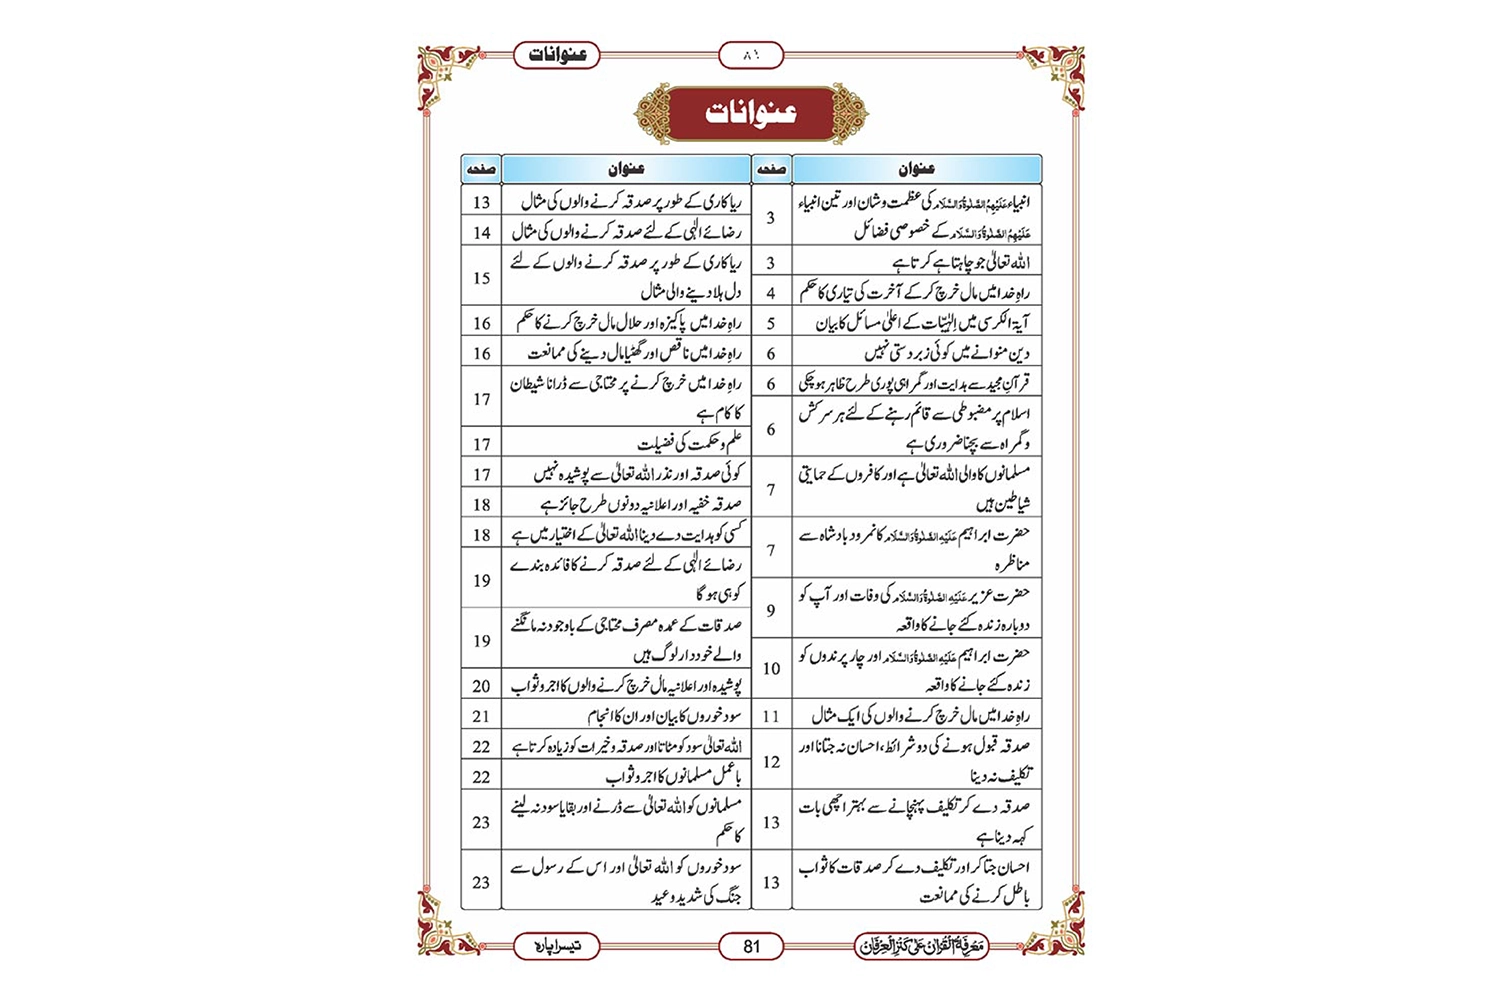 عنوانات
۸۱
عنوانات
عنوان صفحہ
انبیاء عَلَیْہِمُ الصَّلٰوۃُ وَالسَّلَام کی عظمت و شان اور تین انبیاء
عَلَیْہِمُ الصَّلٰوۃُ وَالسَّلَام کے خصوصی فضائل 3
اللہ تعالیٰ جو چاہتا ہے کرتا ہے 3
راہِ خدا میں مال خرچ کر کے آخرت کی تیاری کا حکم 4
آیۃ الکرسی میں اِلٰہِیّات کے اعلیٰ مسائل کا بیان 5
دین منوانے میں کوئی زبردستی نہیں 6
قرآنِ مجید سے ہدایت اور گمراہی پوری طرح ظاہر ہو چکی 6
اسلام پر مضبوطی سے قائم رہنے کے لئے ہر سرکش
و گمراہ سے بچنا ضروری ہے 6
مسلمانوں کا والی اللہ تعالیٰ ہے اور کافروں کے حمایتی
شیاطین ہیں 7
حضرت ابراہیم عَلَیْہِ الصَّلٰوۃُ وَالسَّلَام کا نمرود بادشاہ سے
مناظرہ 7
حضرت عزیر عَلَیْہِ الصَّلٰوۃُ وَالسَّلَام کی وفات اور آپ کو
دوبارہ زندہ کئے جانے کا واقعہ 9
حضرت ابراہیم عَلَیْہِ الصَّلٰوۃُ وَالسَّلَام اور چار پرندوں کو
زندہ کئے جانے کا واقعہ 10
راہِ خدا میں مال خرچ کرنے والوں کی ایک مثال 11
صدقہ قبول ہونے کی دو شرائط، احسان نہ جتانا اور
تکلیف نہ دینا 12
صدقہ دے کر تکلیف پہنچانے سے بہتر اچھی بات
کہہ دینا ہے 13
احسان جتا کر اور تکلیف دے کر صدقات کا ثواب
باطل کرنے کی ممانعت 13
عنوان صفحہ
ریاکاری کے طور پر صدقہ کرنے والوں کی مثال 13
رضائے الٰہی کے لئے صدقہ کرنے والوں کی مثال 14
ریاکاری کے طور پر صدقہ کرنے والوں کے لئے
دل ہلا دینے والی مثال 15
راہِ خدا میں پاکیزہ اور حلال مال خرچ کرنے کا حکم 16
راہِ خدا میں ناقص اور گھٹیا مال دینے کی ممانعت 16
راہِ خدا میں خرچ کرنے پر محتاجی سے ڈرانا شیطان
کا کام ہے 17
علم و حکمت کی فضیلت 17
کوئی صدقہ اور نذر اللہ تعالیٰ سے پوشیدہ نہیں 17
صدقہ خفیہ اور اعلانیہ دونوں طرح جائز ہے 18
کسی کو ہدایت دے دینا اللہ تعالیٰ کے اختیار میں ہے 18
رضائے الٰہی کے لئے صدقہ کرنے کا فائدہ بندے
کو ہی ہو گا 19
صدقات کے عمدہ مصرف محتاجی کے باوجود نہ مانگنے
والے خوددار لوگ ہیں 19
پوشیدہ اور اعلانیہ مال خرچ کرنے والوں کا اجر و ثواب 20
سود خوروں کا بیان اور ان کا انجام 21
اللہ تعالیٰ سود کو مٹاتا اور صدقہ و خیرات کو زیادہ کرتا ہے 22
باعمل مسلمانوں کا اجر و ثواب 22
مسلمانوں کو اللہ تعالیٰ سے ڈرنے اور بقایا سود نہ لینے
کا حکم 23
سود خوروں کو اللہ تعالیٰ اور اس کے رسول سے
جنگ کی شدید وعید 23
مَعْرِفَۃُ الْقُرْاٰن عَلٰی کَنْزِ الْعِرْفَان
81
تیسرا پارہ